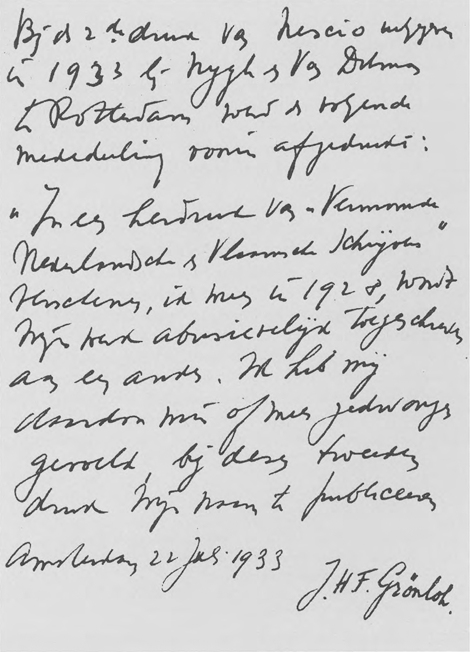 Bij de 2de druk van Nescio uitgegeven
in 1933 bij Nygh & Van Ditmar
te Rotterdam werd de volgende
mededeeling voorin afgedrukt:
"In een herdruk van "Vermomde
Nederlandsche & Vlaamsche Schrijvers"
verschenen, ik meen in 1928, wordt
mijn werk abusievelijk toegeschreven
aan een ander. Ik heb mij
daardoor min of meer gedwongen
gevoeld, bij dezen tweeden
druk mijn naam te publiceeren
Amsterdam 22 Juli 1933
J.H.F. Grönloh.